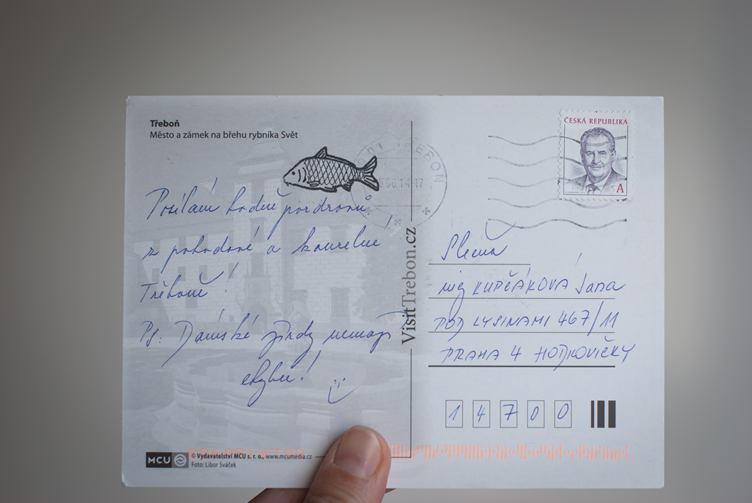 Třeboň
Město a zámek na břehu rybníka Svět
Posílám hodně pozdravů
z pohodové a kouzelné
Třeboně!
Ps: Dámské jízdy nemají
chybu!
VisitTrebon.cz
ČESKÁ REPUBLIKA
A
TŘEBOŇ
Slečna
ing KUPČÁKOVÁ Jana
POD LYSINAMI 467/11
PRAHA 4 HODKOVIČKY
14700
MCU
© Vydavatelství MCU s. r. o., www.mcumedia.cz
Foto: Libor Sváček